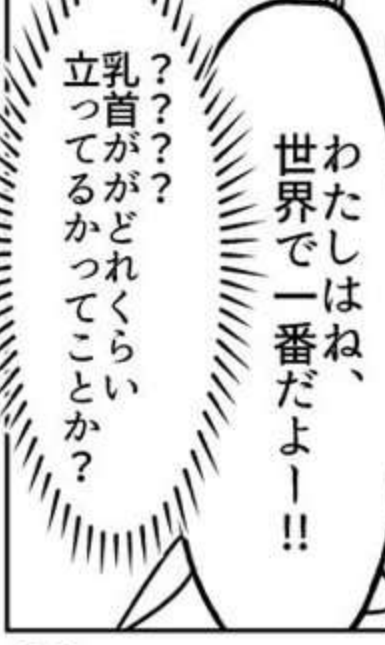 わたしはね、
世界で一番だよー!!
????
乳首ががどれくらい
立ってるかってことか?